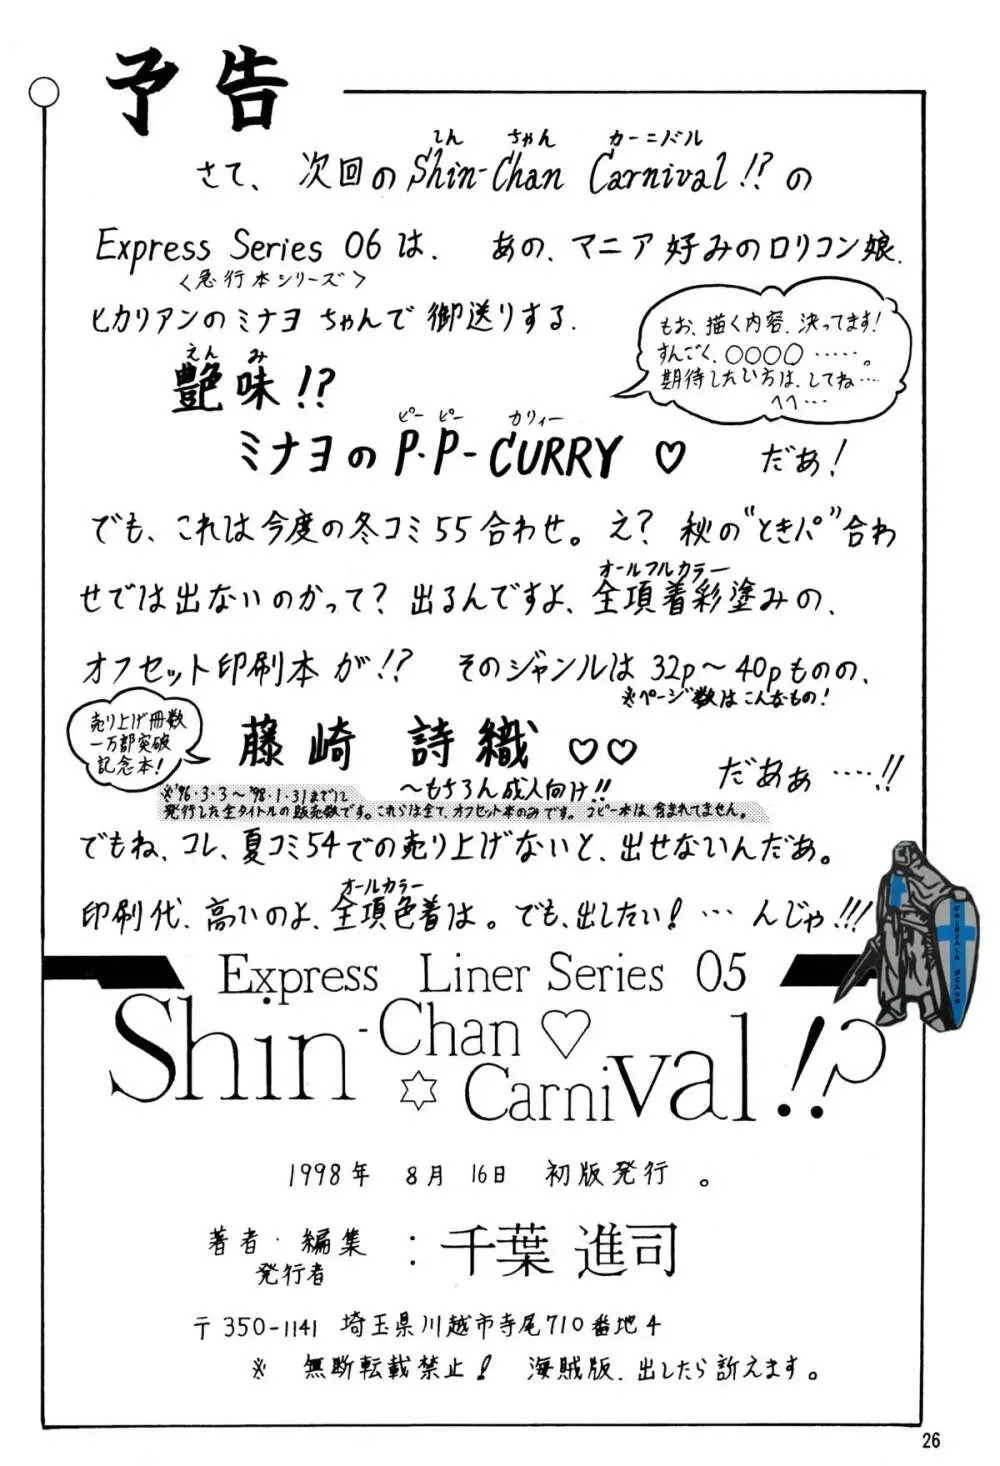 予告
さて、次回のShin-Chan Carnival!?の
しん ちゃん カーニバル
Express Series 06は、 あの、マニア好みのロリコン娘、
〈急行本シリーズ〉
ヒカリアンのミナヨちゃんで御送りする、
もお、描く内容、決ってます!
すんごく、○○○○……。
期待したい方は、してね…
へへ…
えん み
艶味!?
ピー ピー カリィー
ミナヨのP.P-CURRY♡ だあ!
でも、これは今度の冬コミ55合わせ。え? 秋の"ときパ"合わ
せでは出ないのかって? 出るんですよ、全項着彩塗みの、
オールフルカラー
オフセット印刷本が!? そのジャンルは32p~40pものの、
※ページ数はこんなもの!
売り上げ冊数
一万部突破
記念本!
藤崎 詩織♡♡ だあぁ……!!
~もちろん成人向け!!
※'96・3・3~'98・1・31までに
発行した全タイトルの販売数です。これらは全て、オフセット本のみです。コピー本は、含まれてません。
でもね、コレ、夏コミ54での売り上げないと、出せないんだあ。
オールカラー
印刷代、高いのよ、全項色着は。でも、出したい!…んじゃ!!!
VALEVALA SCANS
Express Liner Series 05
Shin-Chan♡
☆Carnival!?
1998年 8月 16日 初版発行。
著者・編集
発行者
: 千葉 進司
〒350-1141 埼玉県川越市寺尾710番地4
※ 無断転載禁止! 海賊版、出したら訴えます。
26